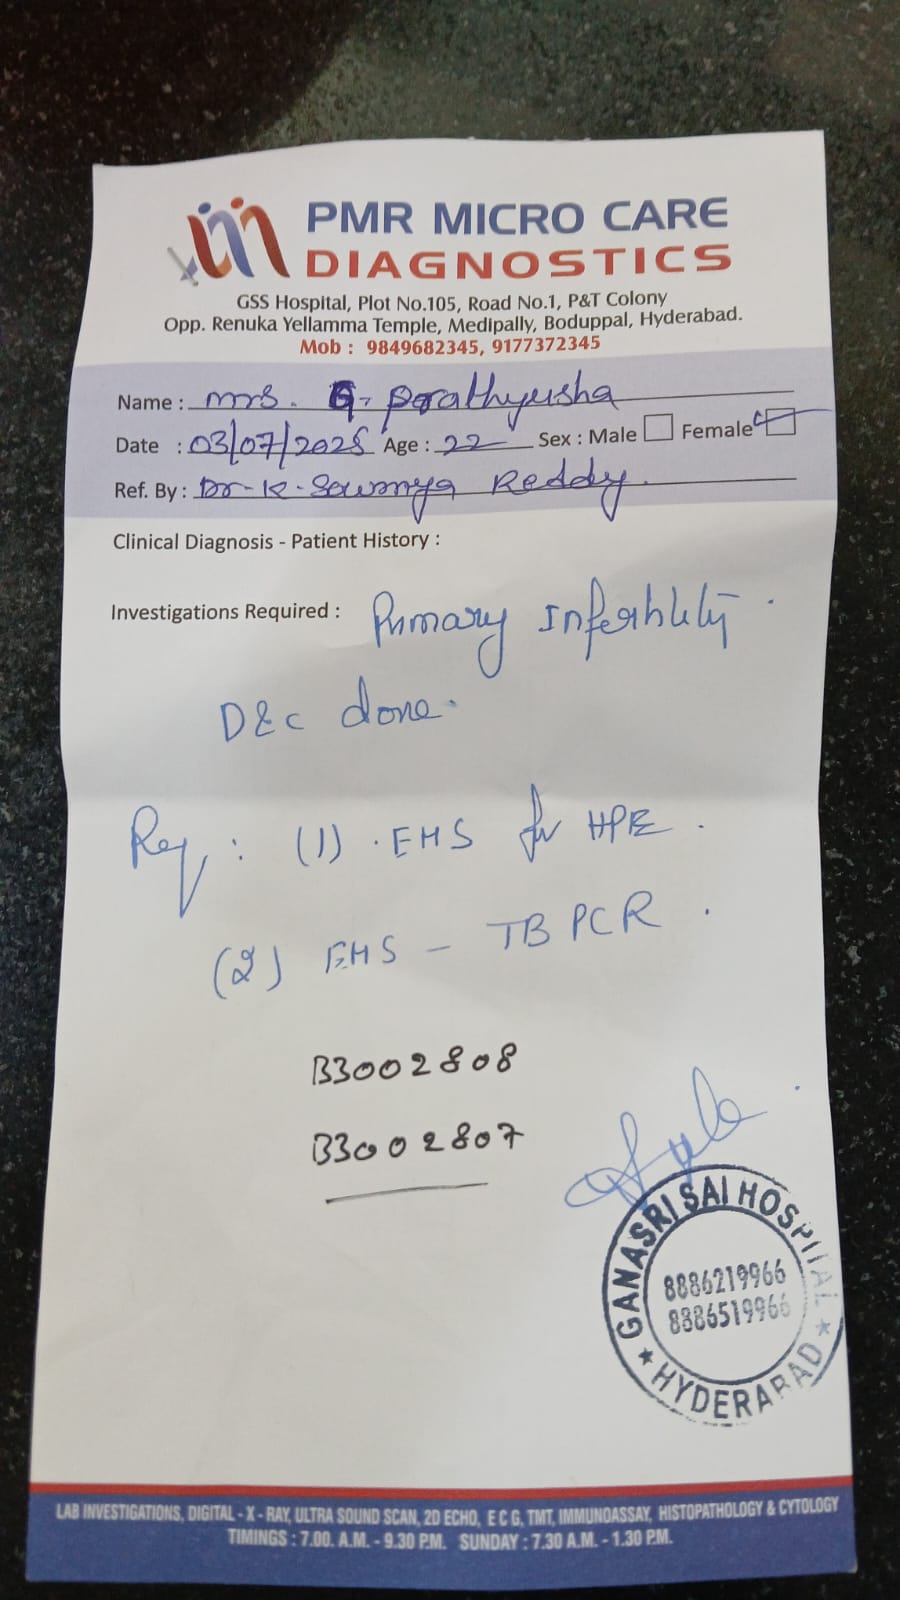 PMR MICRO CARE
DIAGNOSTICS
GSS Hospital, Plot No.105, Road No.1, P&T Colony
Opp. Renuka Yellamma Temple, Medipally, Boduppal, Hyderabad.
Mob : 9849682345, 9177372345
Name : mrs. G. prathyusha
Date : 03/07/2025 Age : 22 Sex : Male Female
Ref. By : Dr-K-Sowmya Reddy.
Clinical Diagnosis - Patient History :
Investigations Required : Primary Infertility.
D&C done.
Req : (1) . EMS for HPE .
(2) EMS - TB PCR .
B3002808
B3002807
GANASRI SAI HOSPITAL
8886219966
8886519966
HYDERABAD
LAB INVESTIGATIONS, DIGITAL - X - RAY, ULTRA SOUND SCAN, 2D ECHO, E C G, TMT, IMMUNOASSAY, HISTOPATHOLOGY & CYTOLOGY
TIMINGS : 7.00. A.M. - 9.30 P.M. SUNDAY : 7.30 A.M. - 1.30 P.M.